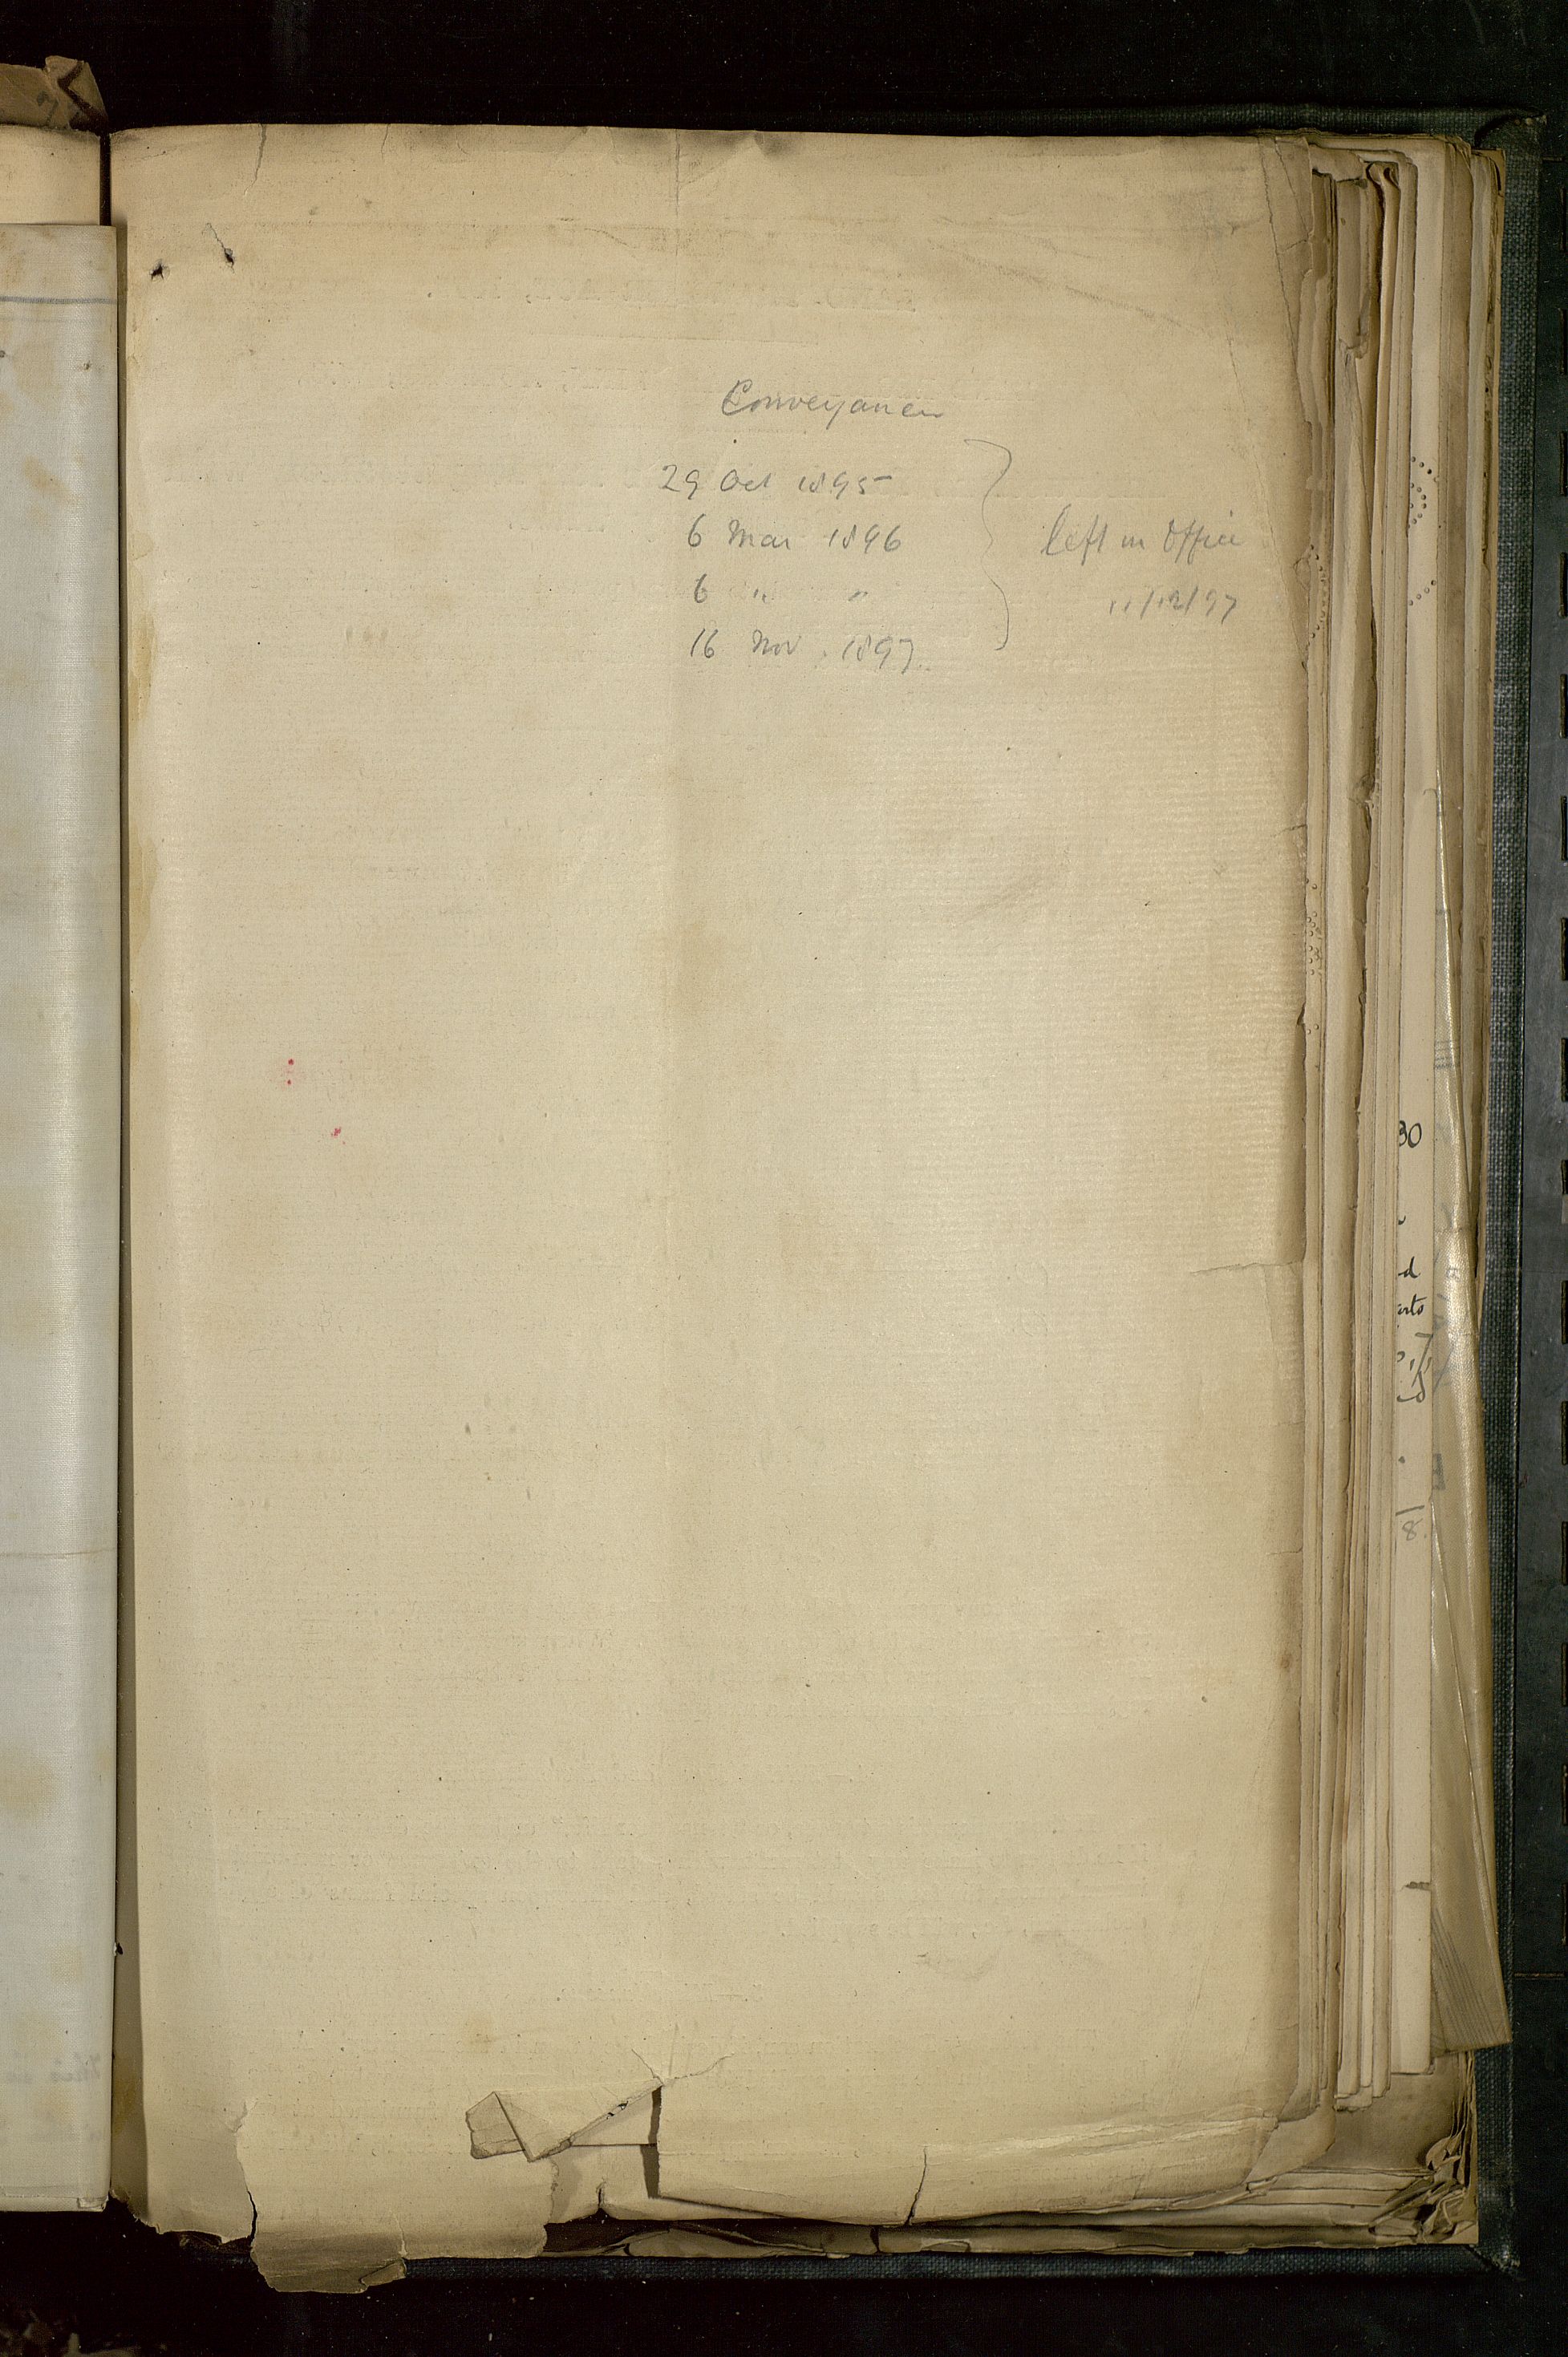 Conveyances
29 Oct 1895
6 Mar 1896
6 " "
16 Nov. 1897.
left in Office
11/12/97
30
d
arto
8.